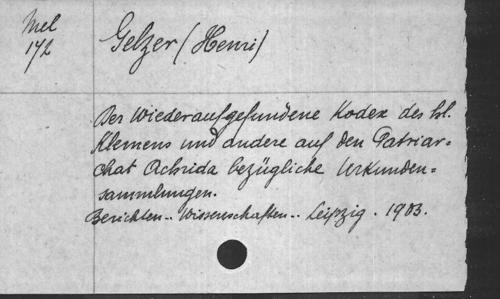 Mel
172
Gelzer (Henri)
Der Wiederaufgefundene Kodex des hl.
Klemens und andere auf den Patriar-
chat Achrida bezügliche Urkunden=
sammlungen.
Berichten.. Wissenschaften.. Leipzig. 1903.